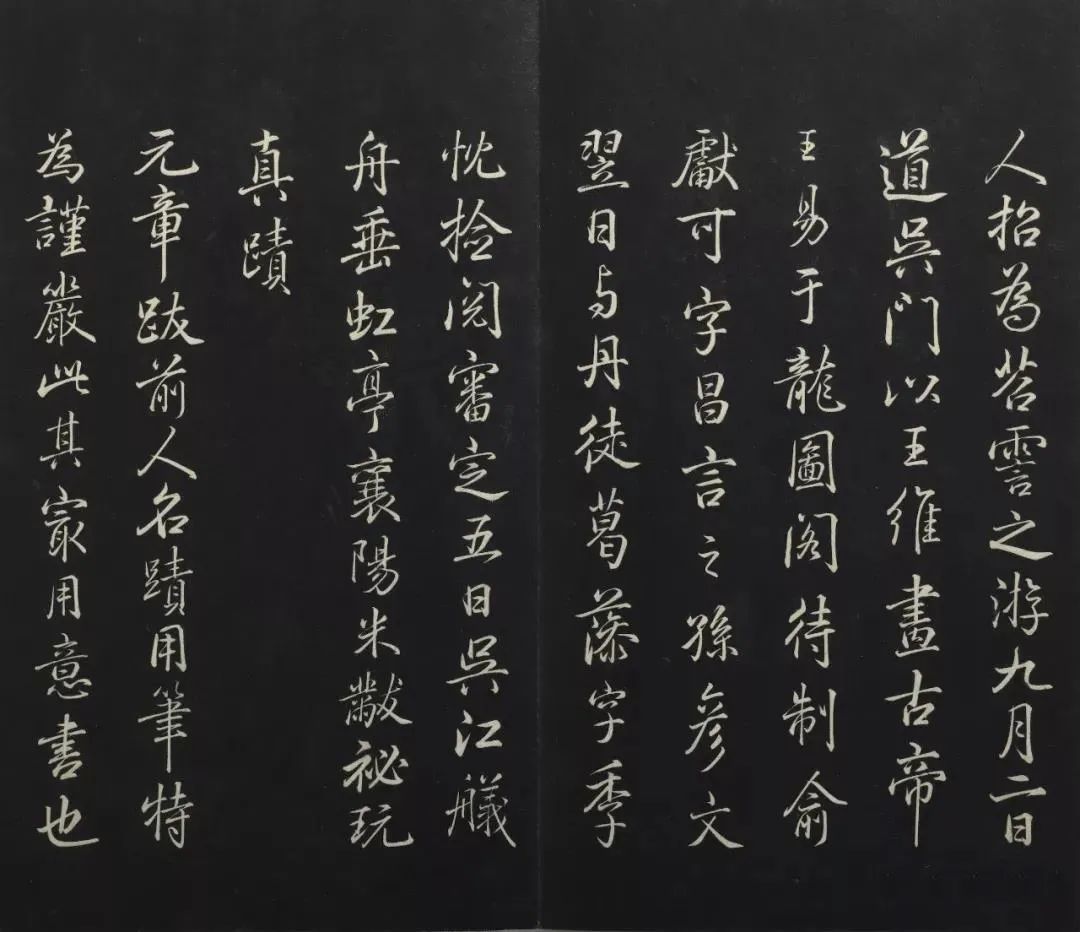 人招為苕霅之游九月二日
道吳門以王維畫古帝
王易于龍圖閣待制俞
獻可字昌言之孫彥文
翌日与丹徒葛藻字季
忱撿閱審定五日吳江艤
舟垂虹亭襄陽米黻祕玩
真蹟
元章跋前人名蹟用筆特
為謹嚴此其寂用意書也